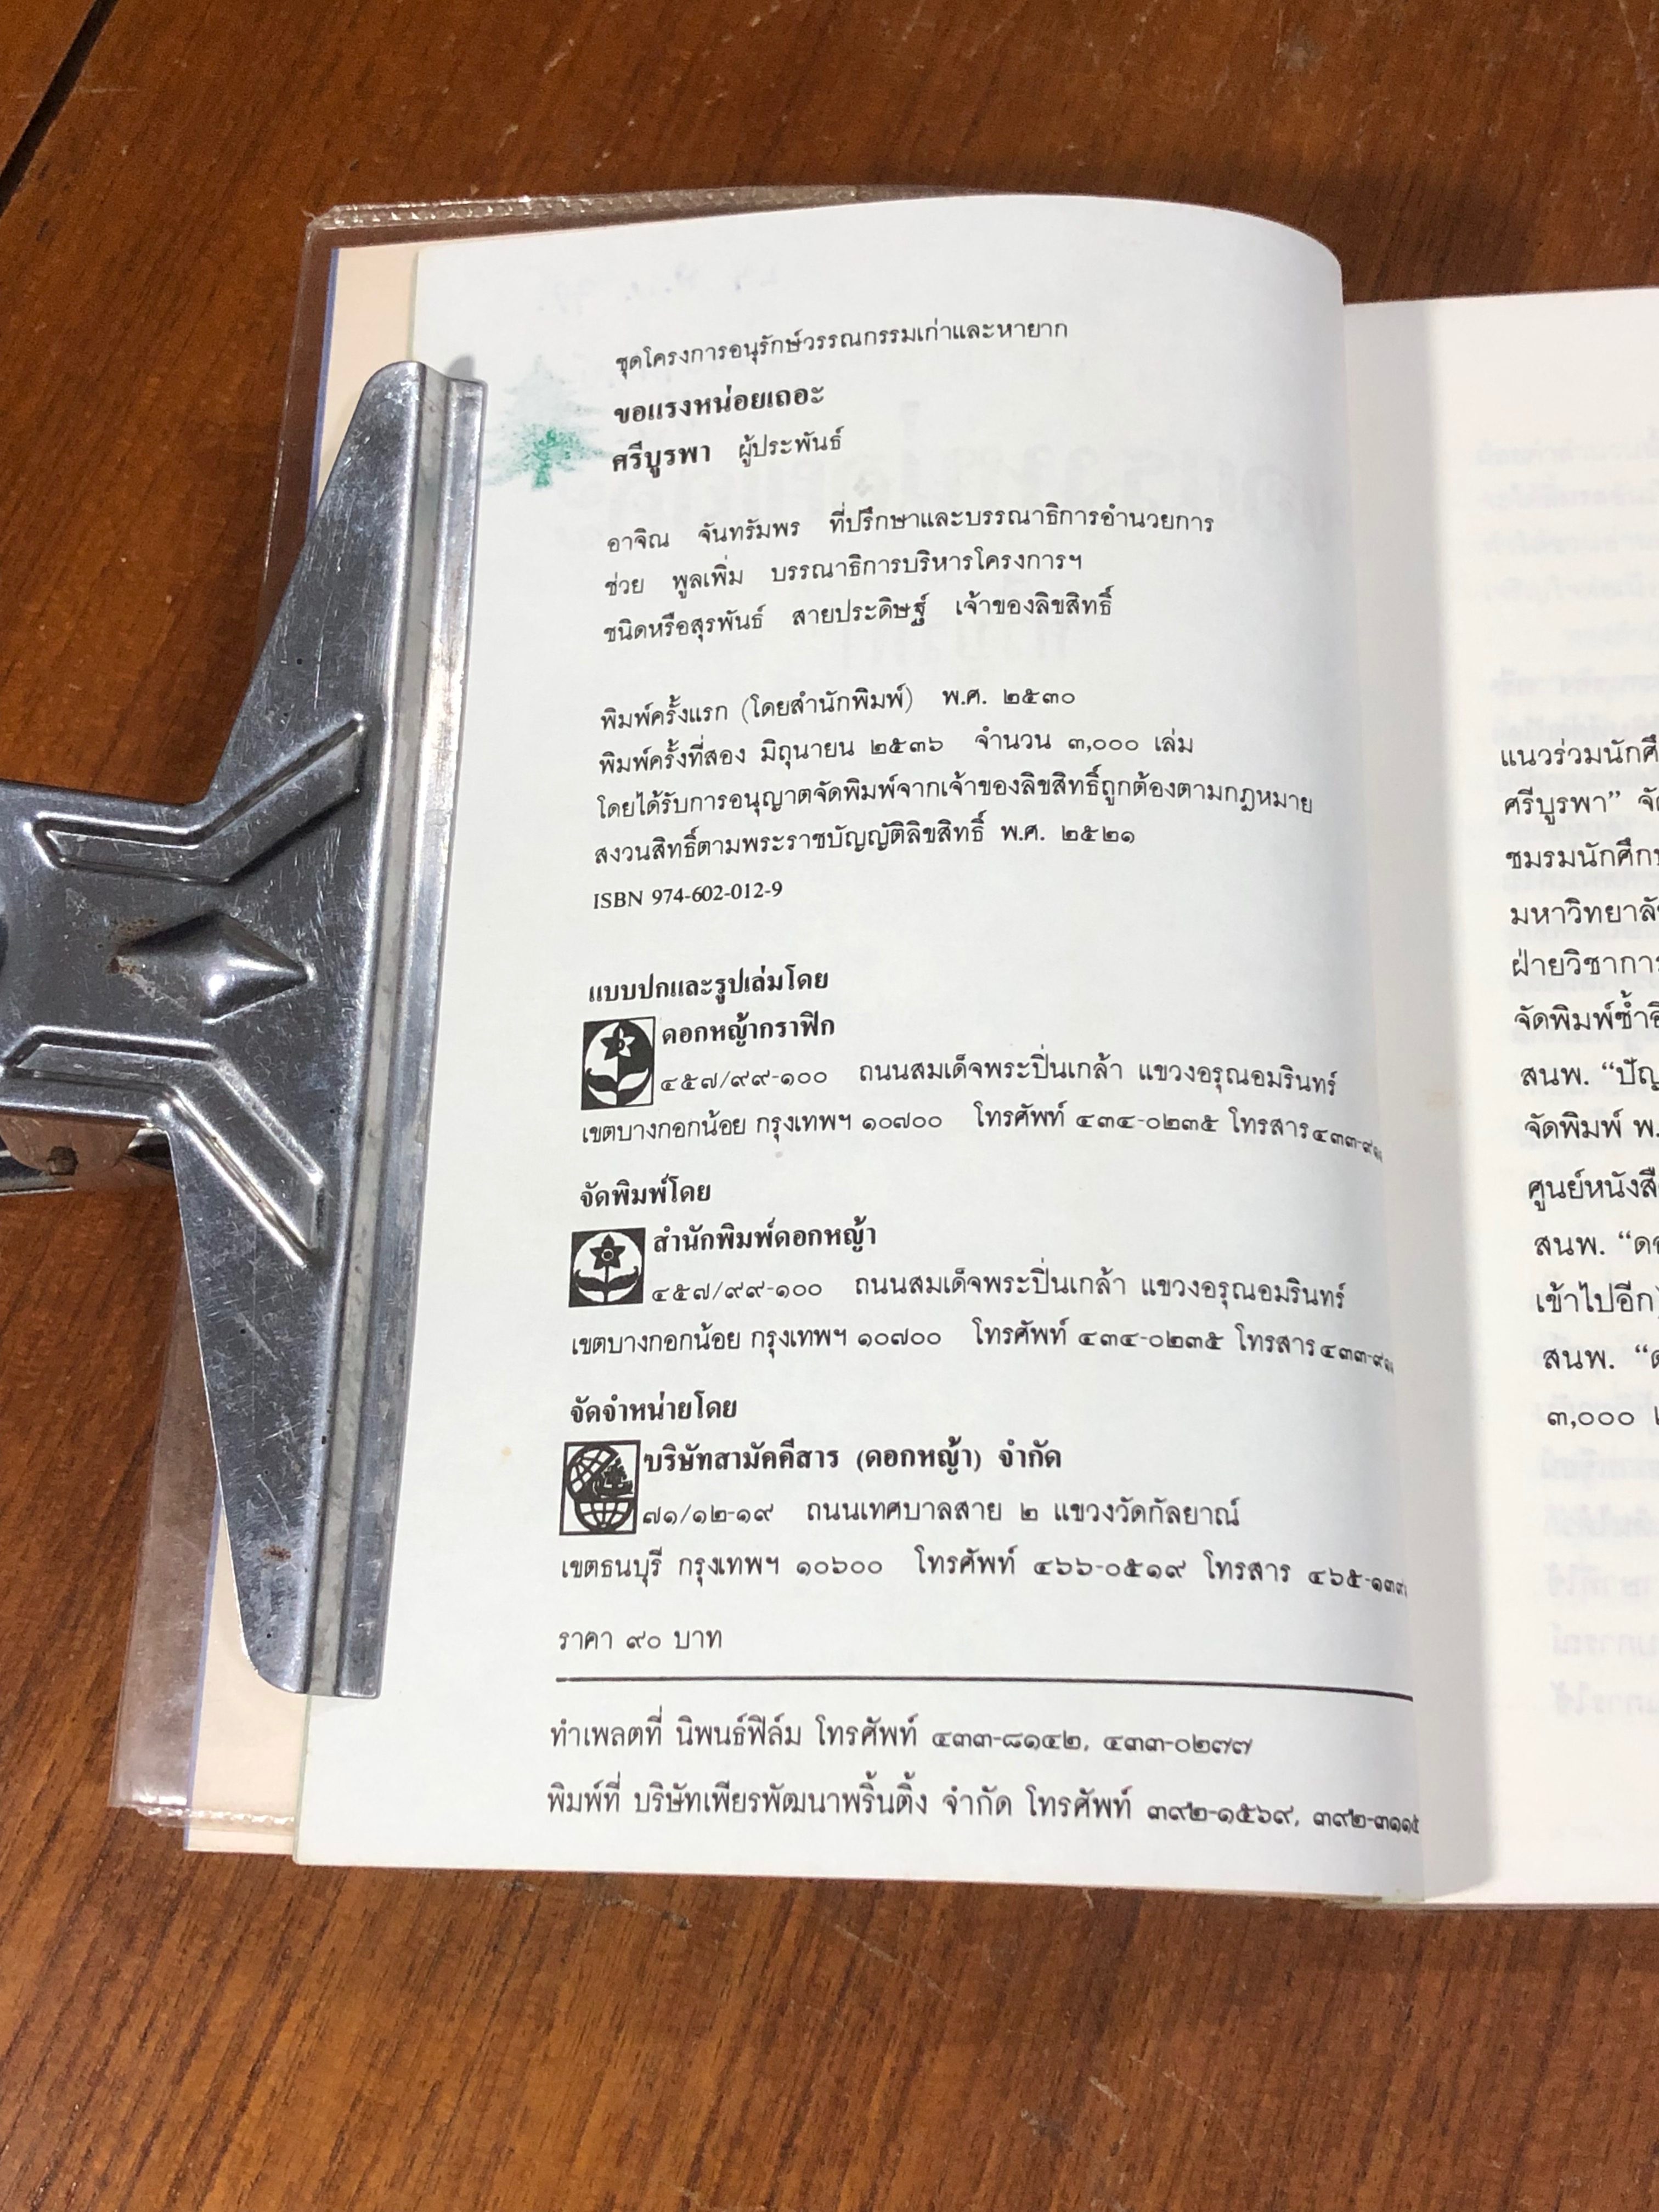 ชุดโครงการอนุรักษ์วรรณกรรมเก่าและหายาก
ขอแรงหน่อยเถอะ
ศรีบูรพา ผู้ประพันธ์
อาจิณ จันทรัมพร ที่ปรึกษาและบรรณาธิการอำนวยการ
ช่วย พูลเพิ่ม บรรณาธิการบริหารโครงการฯ
ชนิดหรือสุรพันธ์ สายประดิษฐ์ เจ้าของลิขสิทธิ์
พิมพ์ครั้งแรก (โดยสำนักพิมพ์) พ.ศ. ๒๕๓๐
พิมพ์ครั้งที่สอง มิถุนายน ๒๕๓๖ จำนวน ๓,๐๐๐ เล่ม
โดยได้รับการอนุญาตจัดพิมพ์จากเจ้าของลิขสิทธิ์ถูกต้องตามกฎหมาย
สงวนสิทธิ์ตามพระราชบัญญัติลิขสิทธิ์ พ.ศ. ๒๕๒๑
ISBN 974-602-012-9
แบบปกและรูปเล่มโดย
ดอกหญ้ากราฟิก
๔๕๗/๙๙-๑๐๐ ถนนสมเด็จพระปิ่นเกล้า แขวงอรุณอมรินทร์
เขตบางกอกน้อย กรุงเทพฯ ๑๐๗๐๐ โทรศัพท์ ๔๓๔-๐๒๓๕ โทรสาร
จัดพิมพ์โดย
สำนักพิมพ์ดอกหญ้า
๔๕๗/๙๙-๑๐๐ ถนนสมเด็จพระปิ่นเกล้า แขวงอรุณอมรินทร์
เขตบางกอกน้อย กรุงเทพฯ ๑๐๗๐๐ โทรศัพท์ ๔๓๔-๐๒๓๕ โทรสาร
จัดจำหน่ายโดย
บริษัทสามัคคีสาร (ดอกหญ้า) จำกัด
๗๑/๑๒-๑๙ ถนนเทศบาลสาย ๒ แขวงวัดกัลยาณ์
เขตธนบุรี กรุงเทพฯ ๑๐๖๐๐ โทรศัพท์ ๔๖๖-๐๕๑๙ โทรสาร
ราคา ๙๐ บาท
ทำเพลตที่ นิพนธ์ฟิล์ม โทรศัพท์ ๔๓๓-๘๑๔๒, ๔๓๓-๐๒๗๗
พิมพ์ที่ บริษัทเพียรพัฒนาพริ้นติ้ง จำกัด โทรศัพท์ ๓๙๒-๑๕๖๙, ๓๙๒-๓๑๑๕
แนวร่วมนักศึ
ศรีบูรพา” จั
ชมรมนักศึกษ
มหาวิทยาลั
ฝ่ายวิชาการ
จัดพิมพ์ซ้ำอี
สนพ. “ปัญ
จัดพิมพ์ พ.
ศูนย์หนังสื
สนพ. “ดอ
เข้าไปอีก)
สนพ. “ด
๓,๐๐๐ เ